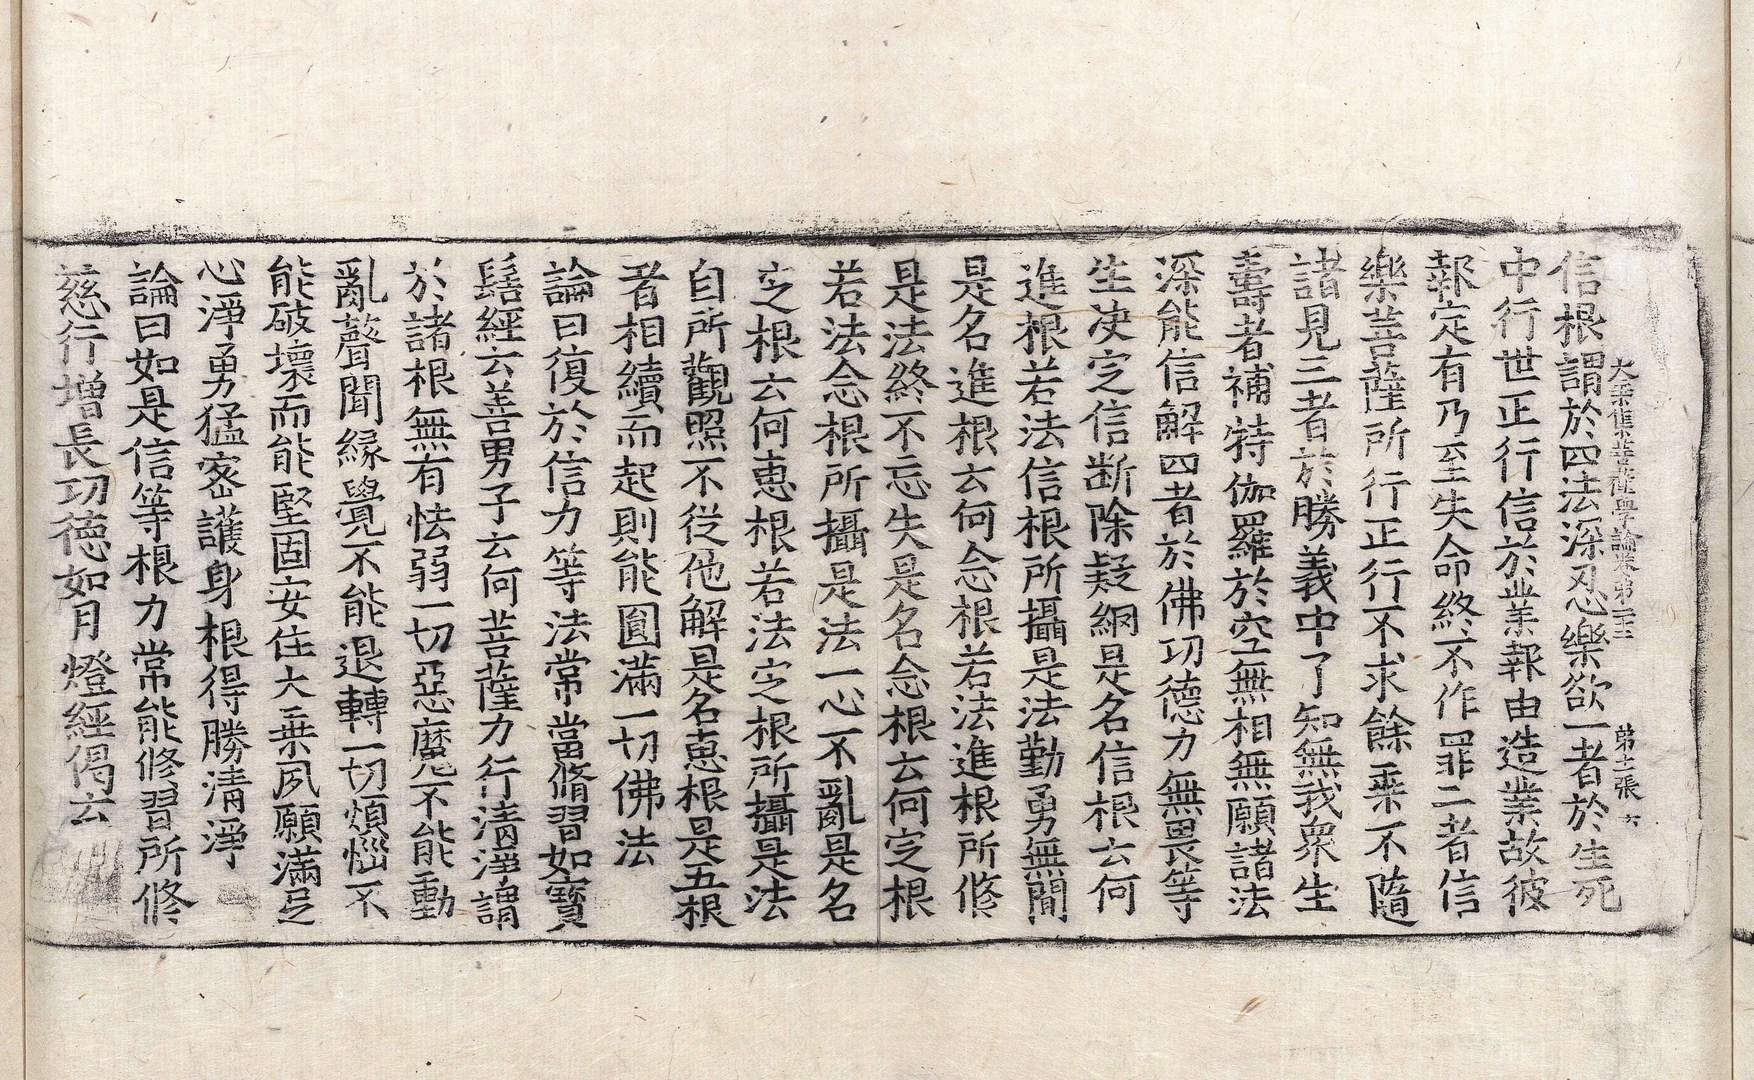 大乘集菩薩學論卷第二十三　第十張　六
信根謂於四法深忍樂欲一者於生死
中行世正行信於業報由造業故彼
報定有乃至失命終不作罪二者信
樂菩薩所行正行不求餘乘不隨
諸見三者於勝義中了知無我衆生
壽者補特伽羅於空無相無願諸法
深能信解四者於佛功德力無畏等
生决定信断除疑網是名信根云何
進根若法信根所攝是法勤勇無間
是名進根云何念根若法進根所修
是法終不忘失是名念根云何定根
若法念根所攝是法一心不亂是名
定根云何恵根若法定根所攝是法
自所觀照不從他解是名恵根是五根
者相續而起則能圓滿一切佛法
論曰復於信力等法常當脩習如寶
髻經云善男子云何菩薩力行清淨謂
於諸根無有怯弱一切惡魔不能動
亂聲聞緣覺不能退轉一切煩惱不
能破壞而能堅固安住大乘夙願滿足
心淨勇猛密護身根得勝清淨
論曰如是信等根力常能修習所修
慈行增長功德如月燈經偈云